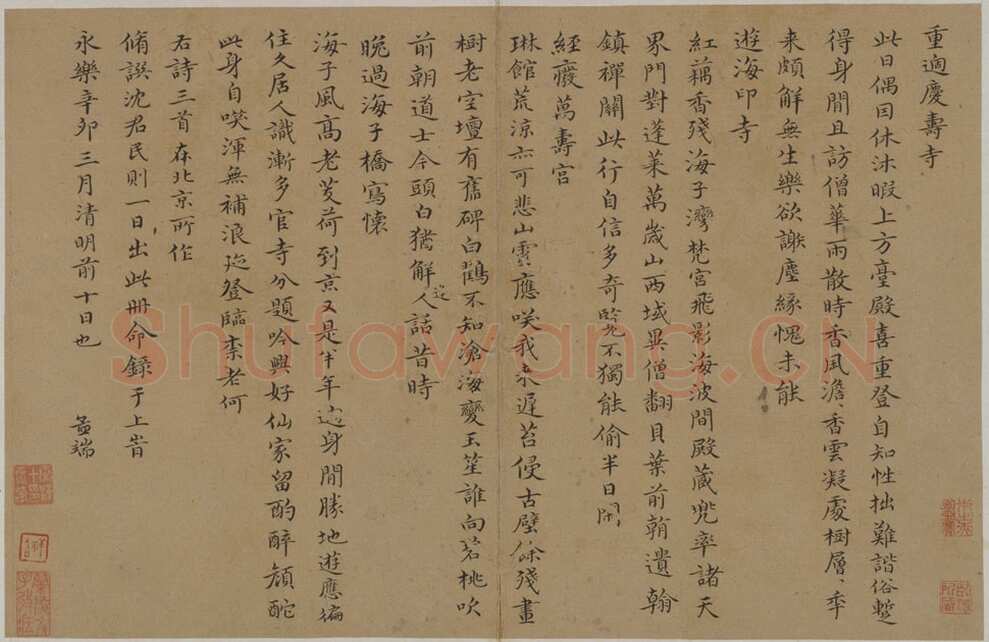 重過慶壽寺
此日偶因休沐暇上方臺殿喜重登自知性拙難諧俗蹔
得身閒且訪僧華雨散時香風澹、香雲凝處樹層、年
来頗解無生樂欲謝塵緣愧未能
遊海印寺
紅藕香殘海子灣梵宮飛影海波間殿藏兜率諸天
界門對蓬萊萬歲山西域異僧翻貝葉前朝遺翰
鎮禪關此行自信多奇覽不獨能偷半日閑
經廢萬壽宮
琳館荒涼亦可悲山靈應咲我来遲苔侵古壁餘殘畫
樹老空壇有舊碑白鶴不知滄海變玉笙誰向碧桃吹
前朝道士今頭白猶解人話昔時
晚過海子橋寫懷
海子風高老芰荷到京又是半年過身閒勝地遊應徧
住久居人識漸多官寺分題吟興好仙家留酌醉顏酡
此身自咲渾無補浪跡登臨柰老何
右詩三首在北京所作
脩譔沈君民則一日出此冊命錄于上旹
永樂辛卯三月清明前十日也
孟端
Shufawang.CN